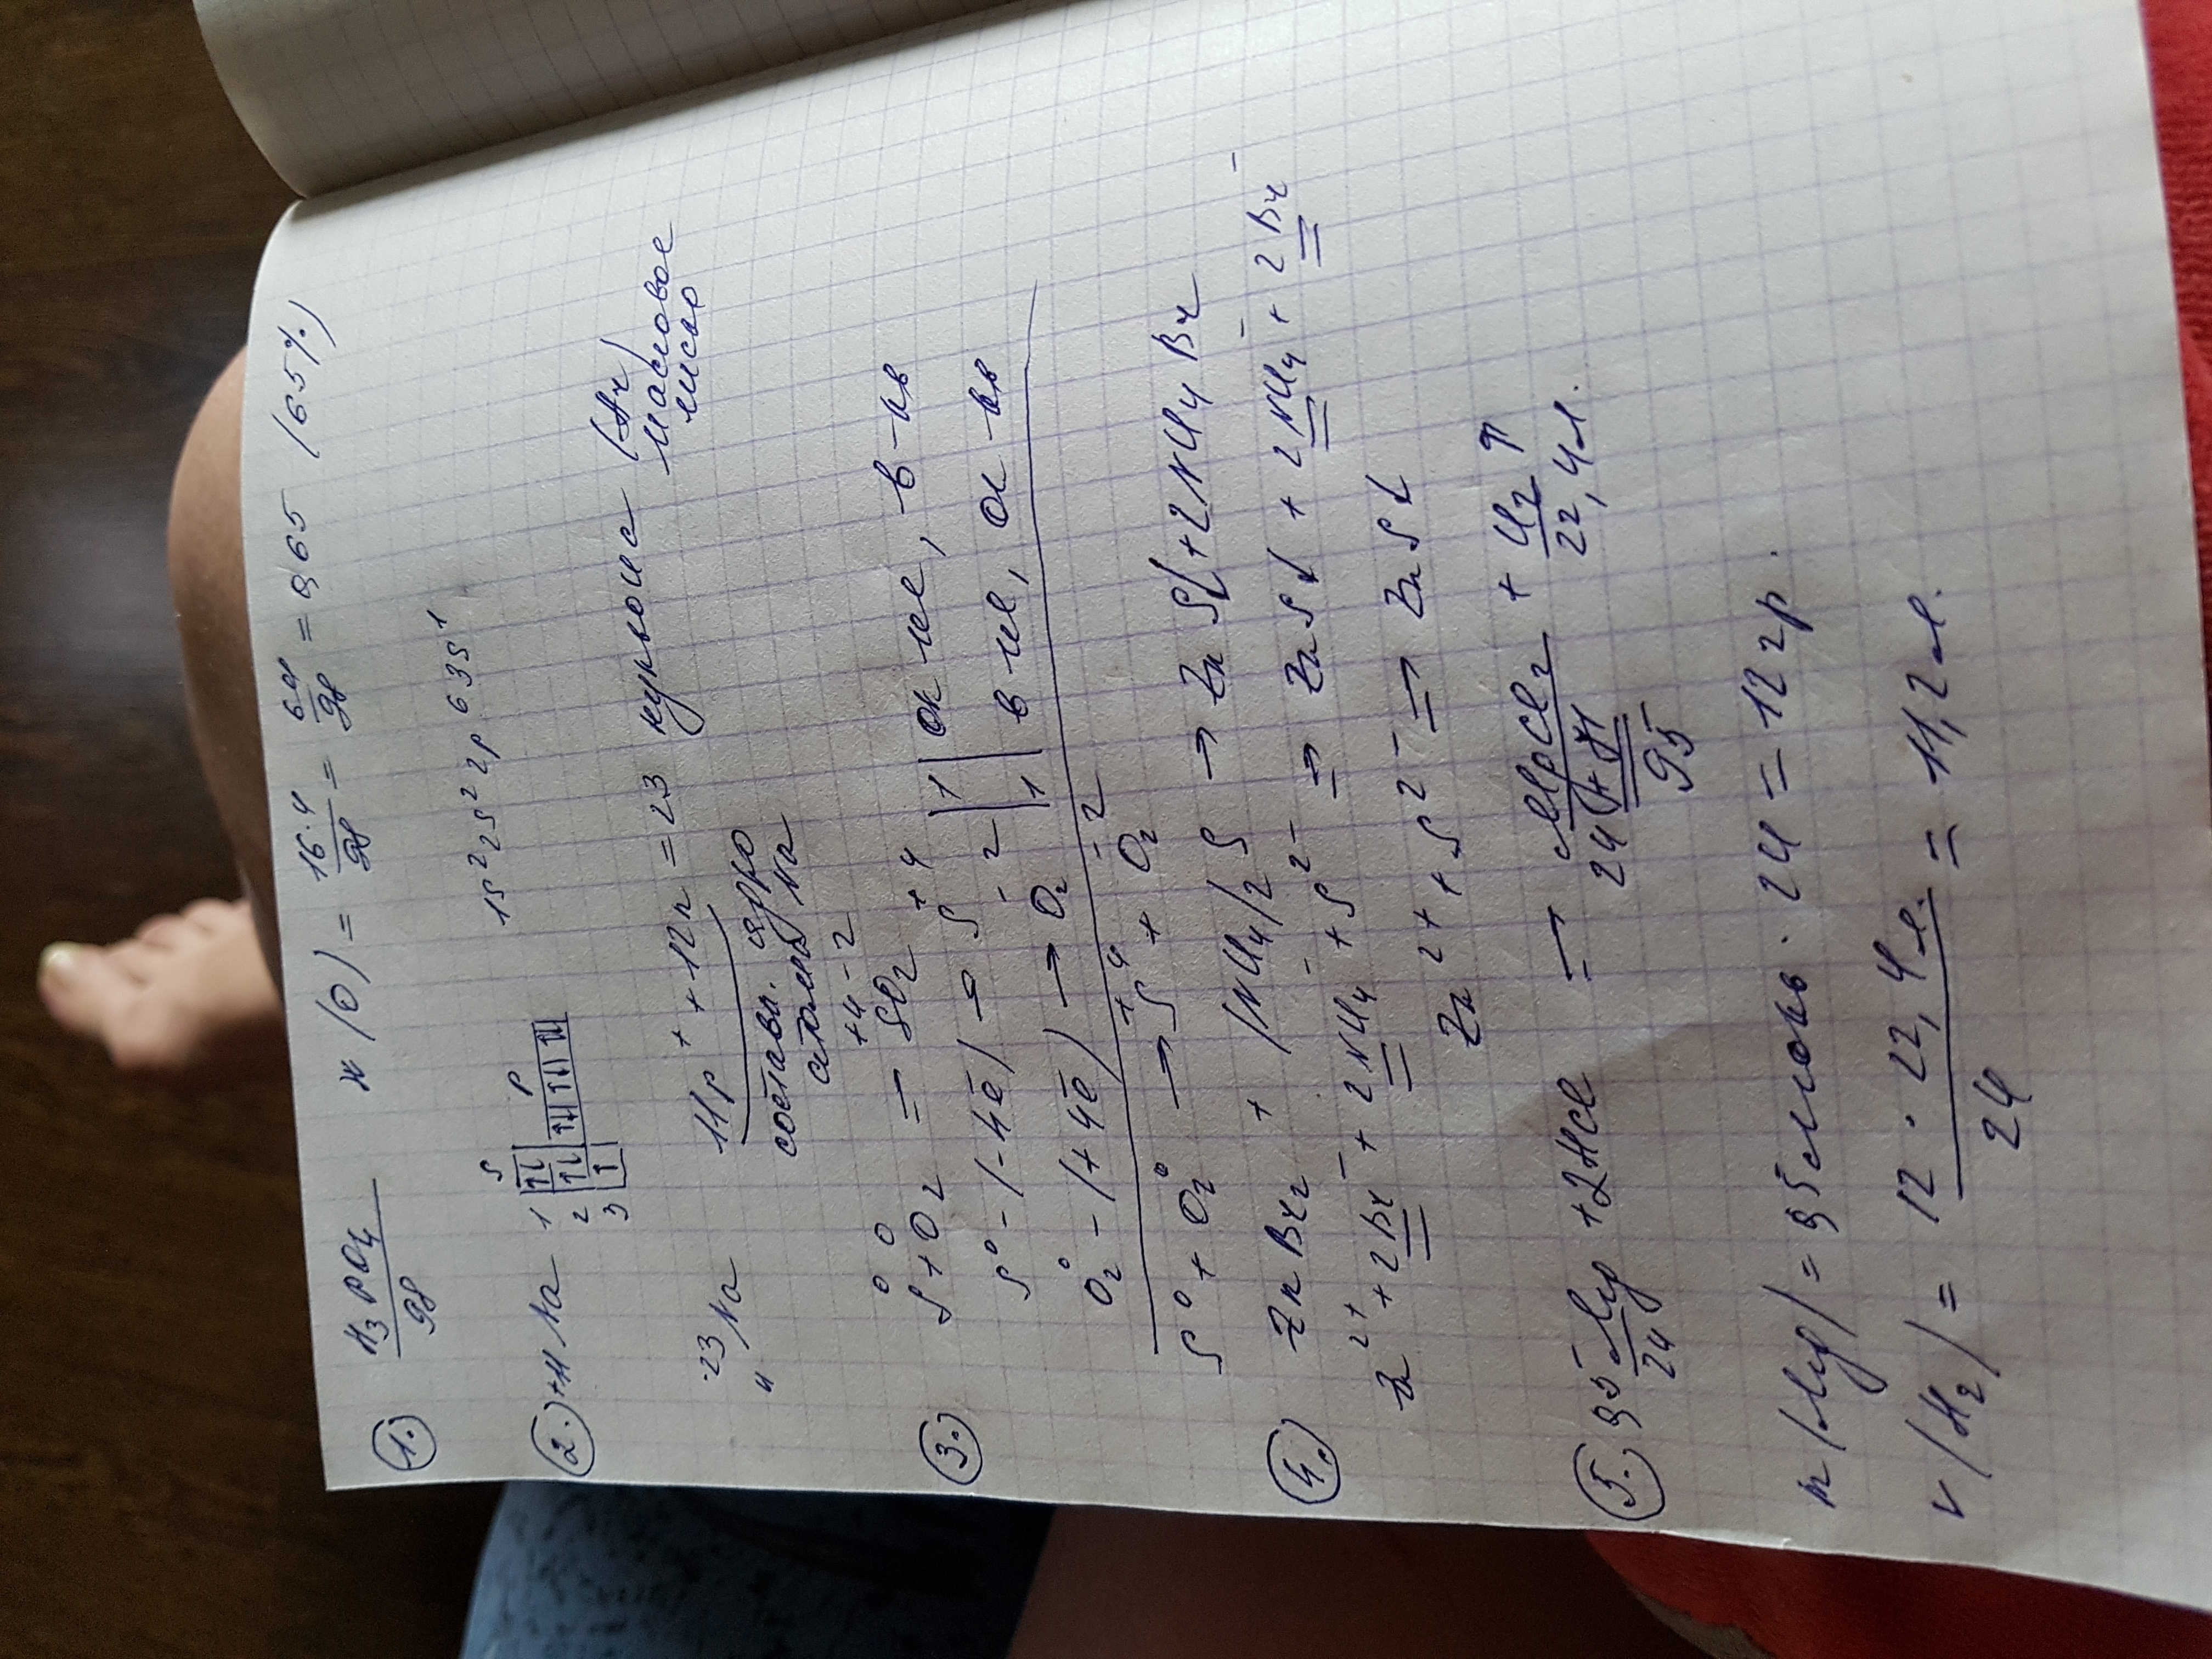 1. H3PO4/98 w(O) = 16·4/98 = 64/98 = 0,65 (65%)
2. +11 Na 1s²2s²2p⁶3s¹
S P
1 ↑↓
2 ↑↓ ↑↓ ↑↓ ↑↓
3 ↑
23 11 Na 11p⁺ + 12n = 23 нуклона (Ar)
массовое
число
составл. ядро
атома Na
3. S⁰ + O2⁰ = S⁺⁴O2⁻²
S⁰ - (-4ē) → S⁺⁴ 1 ок-ние, в-ль
O2⁰ - (+4ē) → O2⁻² 1 в-ние, ок-ль
S⁰ + O2⁰ → S⁺⁴ + O2⁻²
4. ZnBr2 + (NH4)2S → ZnS↓ + 2NH4Br
Zn²⁺ + 2Br⁻ + 2NH4⁻ + S²⁻ ⇒ ZnS↓ + 2NH4⁻ + 2Br⁻
Zn²⁺ + S²⁻ ⇒ ZnS↓
5. 0,5 Mg/24 + 2HCl ⇒ MgCl2/24+71 + H2↑/22,4л.
95
m(Mg) = 0,5 моль · 24 = 12 гр.
v(H2) = 12 · 22,4л./24 = 11,2л.